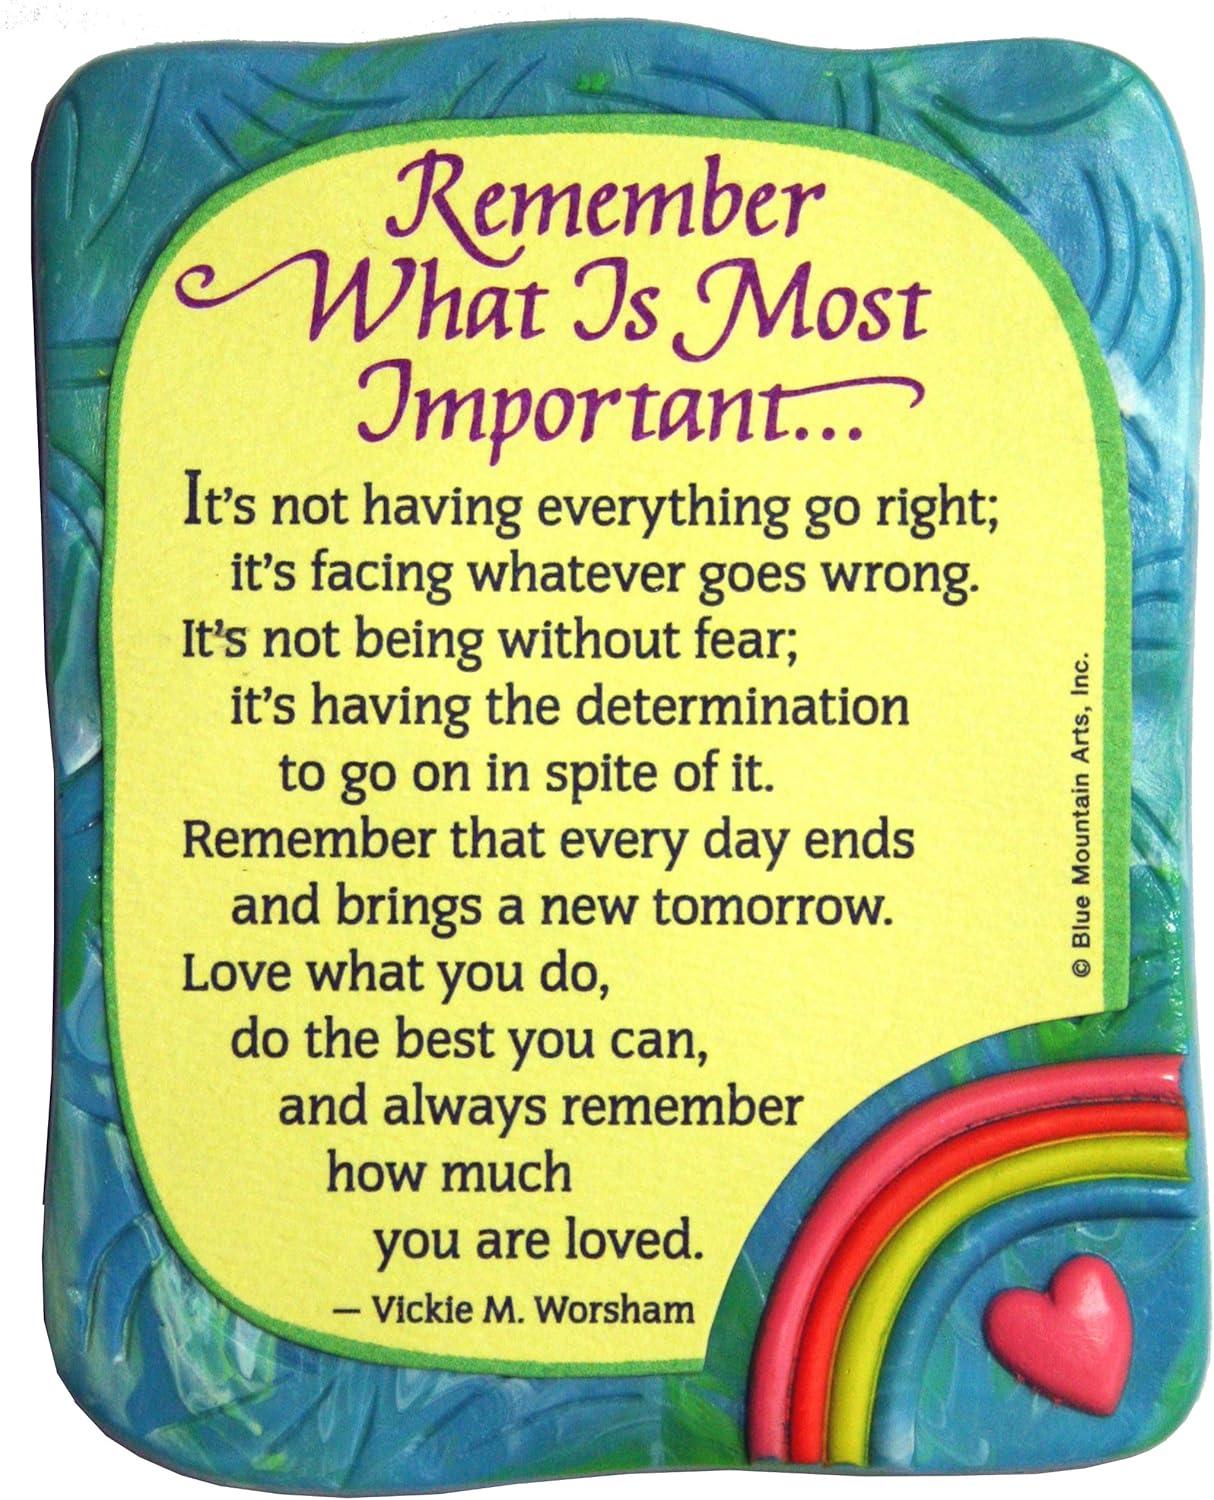 Remember
What Is Most
Important...
It's not having everything go right;
it's facing whatever goes wrong.
It's not being without fear;
it's having the determination
to go on in spite of it.
Remember that every day ends
and brings a new tomorrow.
Love what you do,
do the best you can,
and always remember
how much
you are loved.
— Vickie M. Worsham
© Blue Mountain Arts, Inc.